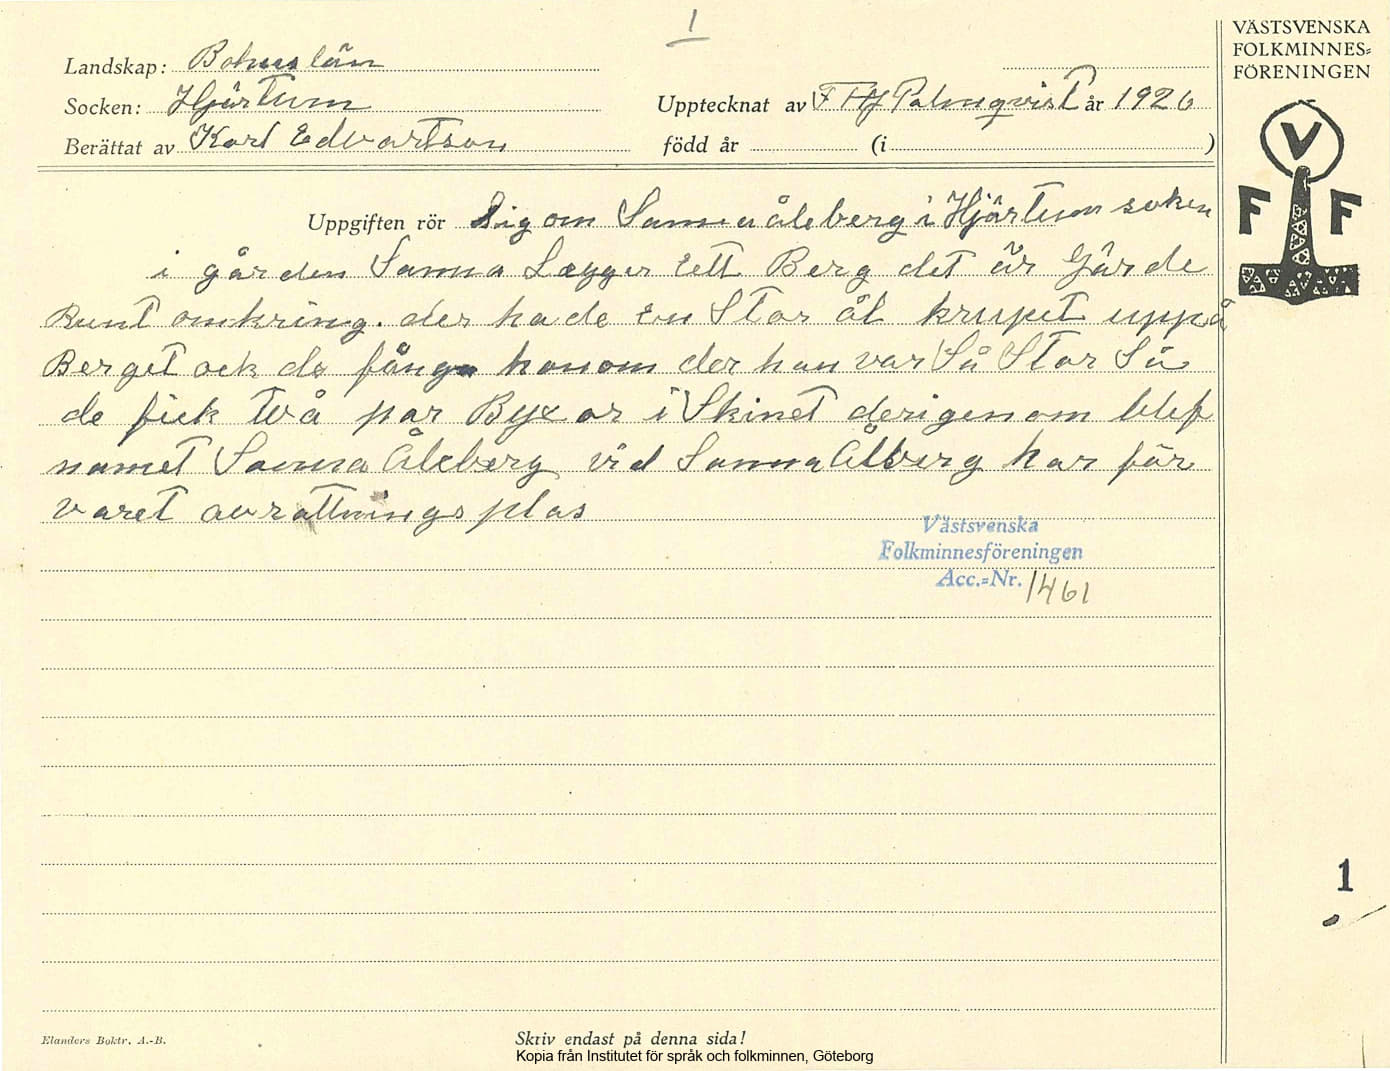 1
VÄSTSVENSKA
FOLKMINNES=
FÖRENINGEN
V
F F
Landskap: Bohuslän
Socken: Hjärtum
Upptecknat av Palmqvist år 1926
Berättat av Karl Edvartson
född år (i )
Uppgiften rör Sig om Sanna åleberg i Hjärtum soken
i gården Sanna Lægger Ett Berg det är Gärde
Runt omkring. der hade En Stor ål krupet uppå
Berget ock de fånga honom der han var Så Stor Så
de fick två par Byxor i Skinet derigenom blef
namet Sanna Åleberg vid Sanna Ålberg har för
varet avrattnings plas
Västsvenska
Folkminnesföreningen
Acc.=Nr. 1461
1
Elanders Boktr. A.-B.
Skriv endast på denna sida!
Kopia från Institutet för språk och folkminnen, Göteborg